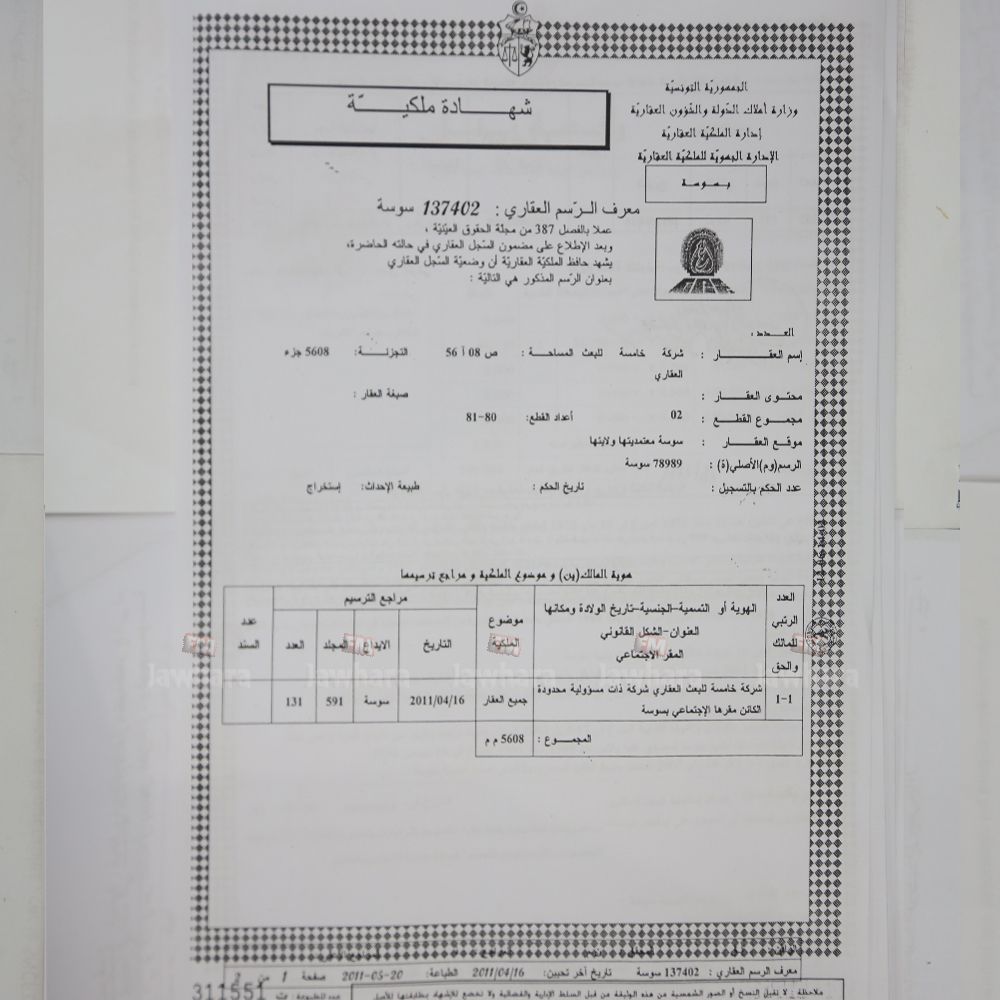 الجمهوريّة التونسيّة
وزارة أملاك الدّولة والشّؤون العقاريّة
إدارة الملكيّة العقاريّة
الإدارة الجهويّة للملكيّة العقاريّة
بسوسة
شهـــادة ملكيـــّة
معرف الرّسم العقاري : 137402 سوسة
عملا بالفصل 387 من مجلة الحقوق العينيّة ،
وبعد الإطلاع على مضمون السّجل العقاري في حالته الحاضرة،
يشهد حافظ الملكيّة العقاريّة أن وضعيّة السّجل العقاري
بعنوان الرّسم المذكور هي التاليّة :
العـــدد :
إسم العقـــــار : شركة خامسة للبعث العقاري المساحـــة : 56 أ 08 ص التجزئـــة : 5608 جزء
محتوى العقـــــار : صبغة العقار :
مجموع القطـــع : 02 أعداد القطع: 80-81
موقع العقـــــار : سوسة معتمديتها ولايتها
الرسم(وم)الأصلي(ة) : 78989 سوسة
عدد الحكم بالتسجيل : تاريخ الحكم : طبيعة الإحداث: إستخراج
هوية المالك(ين) و موضوع الملكية و مراجع ترسيمها
العدد الرتبي للمالك والحق
الهوية أو التسمية-الجنسية-تاريخ الولادة ومكانها
العنوان-الشكل القانوني
المقر الإجتماعي
موضوع الملكية
مراجع الترسيم
التاريخ الايداع المجلد العدد
عدد السند
1-1 شركة خامسة للبعث العقاري شركة ذات مسؤولية محدودة الكائن مقرها الإجتماعي بسوسة جميع العقار 2011/04/16 سوسة 591 131
المجمـــوع : 5608 م م
FM FM FM FM FM
Jawhara Jawhara Jawhara Jawhara Jawhara
معرف الرسم العقاري : 137402 سوسة تاريخ آخر تحيين: 2011/04/16 الطباعة: 2011-05-20 صفحة 1 من 2
ملاحظة : لا تقبل النسخ أو الصور الشمسية من هذه الوثيقة من قبل السلط الإدارية والقضائية ولا تخضع للإشهاد بمطابقتها للأصل
311551